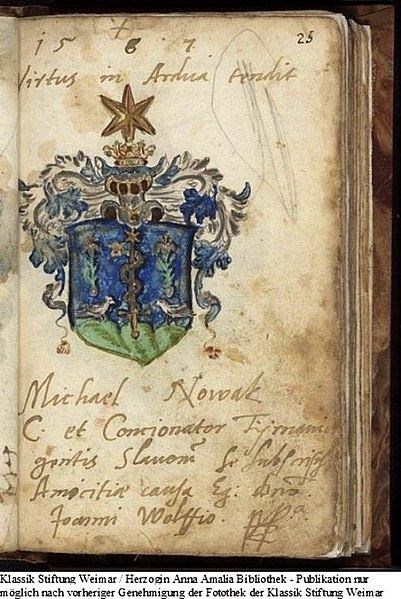 25
15 + 87.
Virtus in Ardua tendit
Michael Nowak
C. et Concionator Tÿrnavie
gentis Slavoru Se Subscripsit
Amicitiæ causa Eg: dno.
Joanni Wolffio.
Klassik Stiftung Weimar / Herzogin Anna Amalia Bibliothek - Publikation nur
möglich nach vorheriger Genehmigung der Fotothek der Klassik Stiftung Weimar